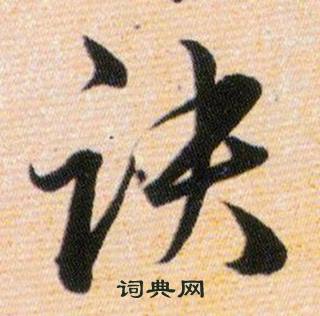 诀
词典网